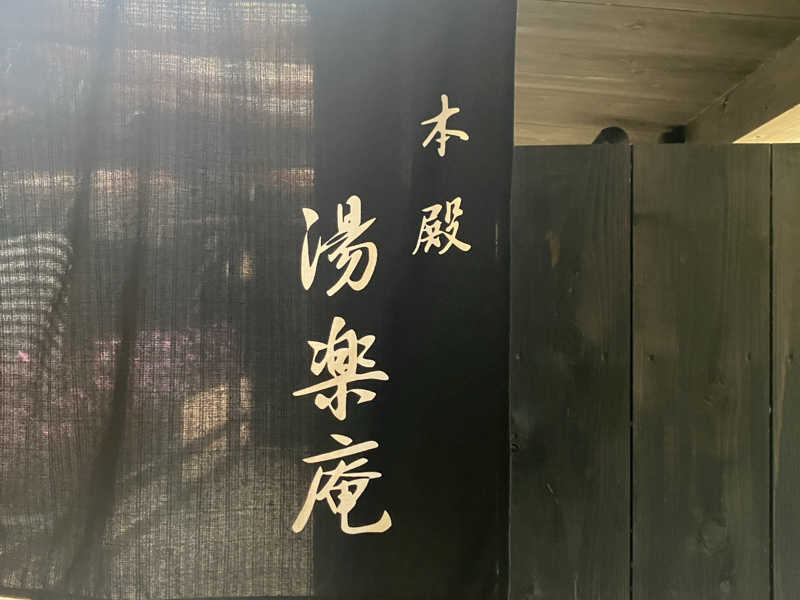 本殿
湯楽庵